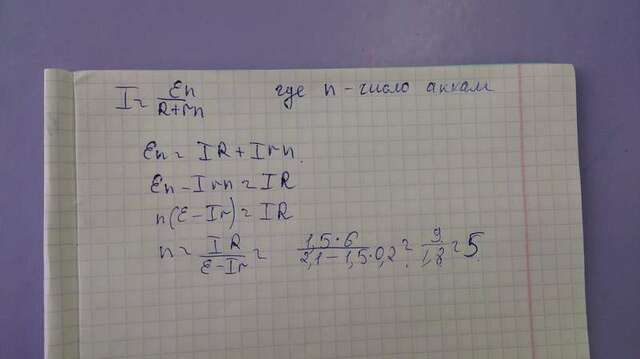 I = En/(R+rn) где n - число аккам
En = IR + Irn.
En - Irn = IR
n(E - Ir) = IR
n = IR/(E - Ir) = 1,5·6/(2,1 - 1,5·0,2) = 9/1,8 = 5.